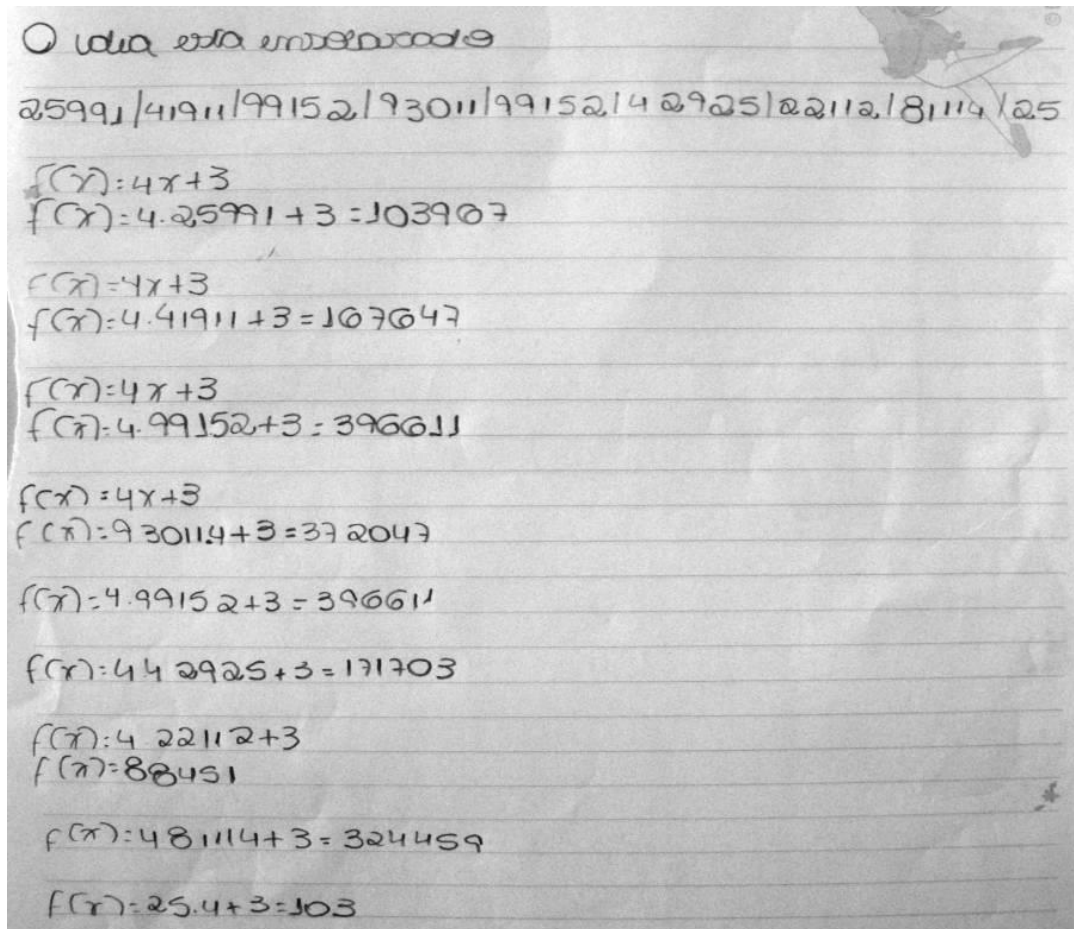 O idia esta ensolarado
25991/41911/99152/93011/99152/42925/22112/81114/25
f(x)=4x+3
f(x)=4.25991+3=103967
f(x)=4x+3
f(x)=4.41911+3=167647
f(x)=4x+3
f(x)=4.99152+3=396611
f(x)=4x+3
f(x)=93011.4+3=372047
f(x)=4.99152+3=396611
f(x)=4 42925+3=171703
f(x)=4 22112+3
f(x)=88451
f(x)=4 81114+3=324459
f(x)=25.4+3=103